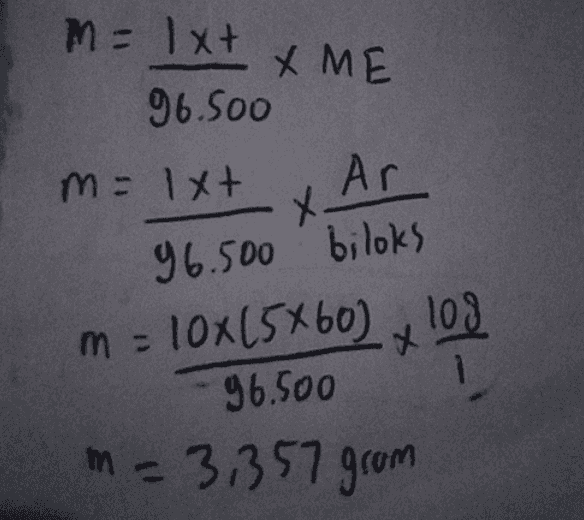 m = I x t / 96.500 x ME
m = I x t / 96.500 x Ar / biloks
m = 10x(5x60) / 96.500 x 108 / 1
m = 3,357 gram